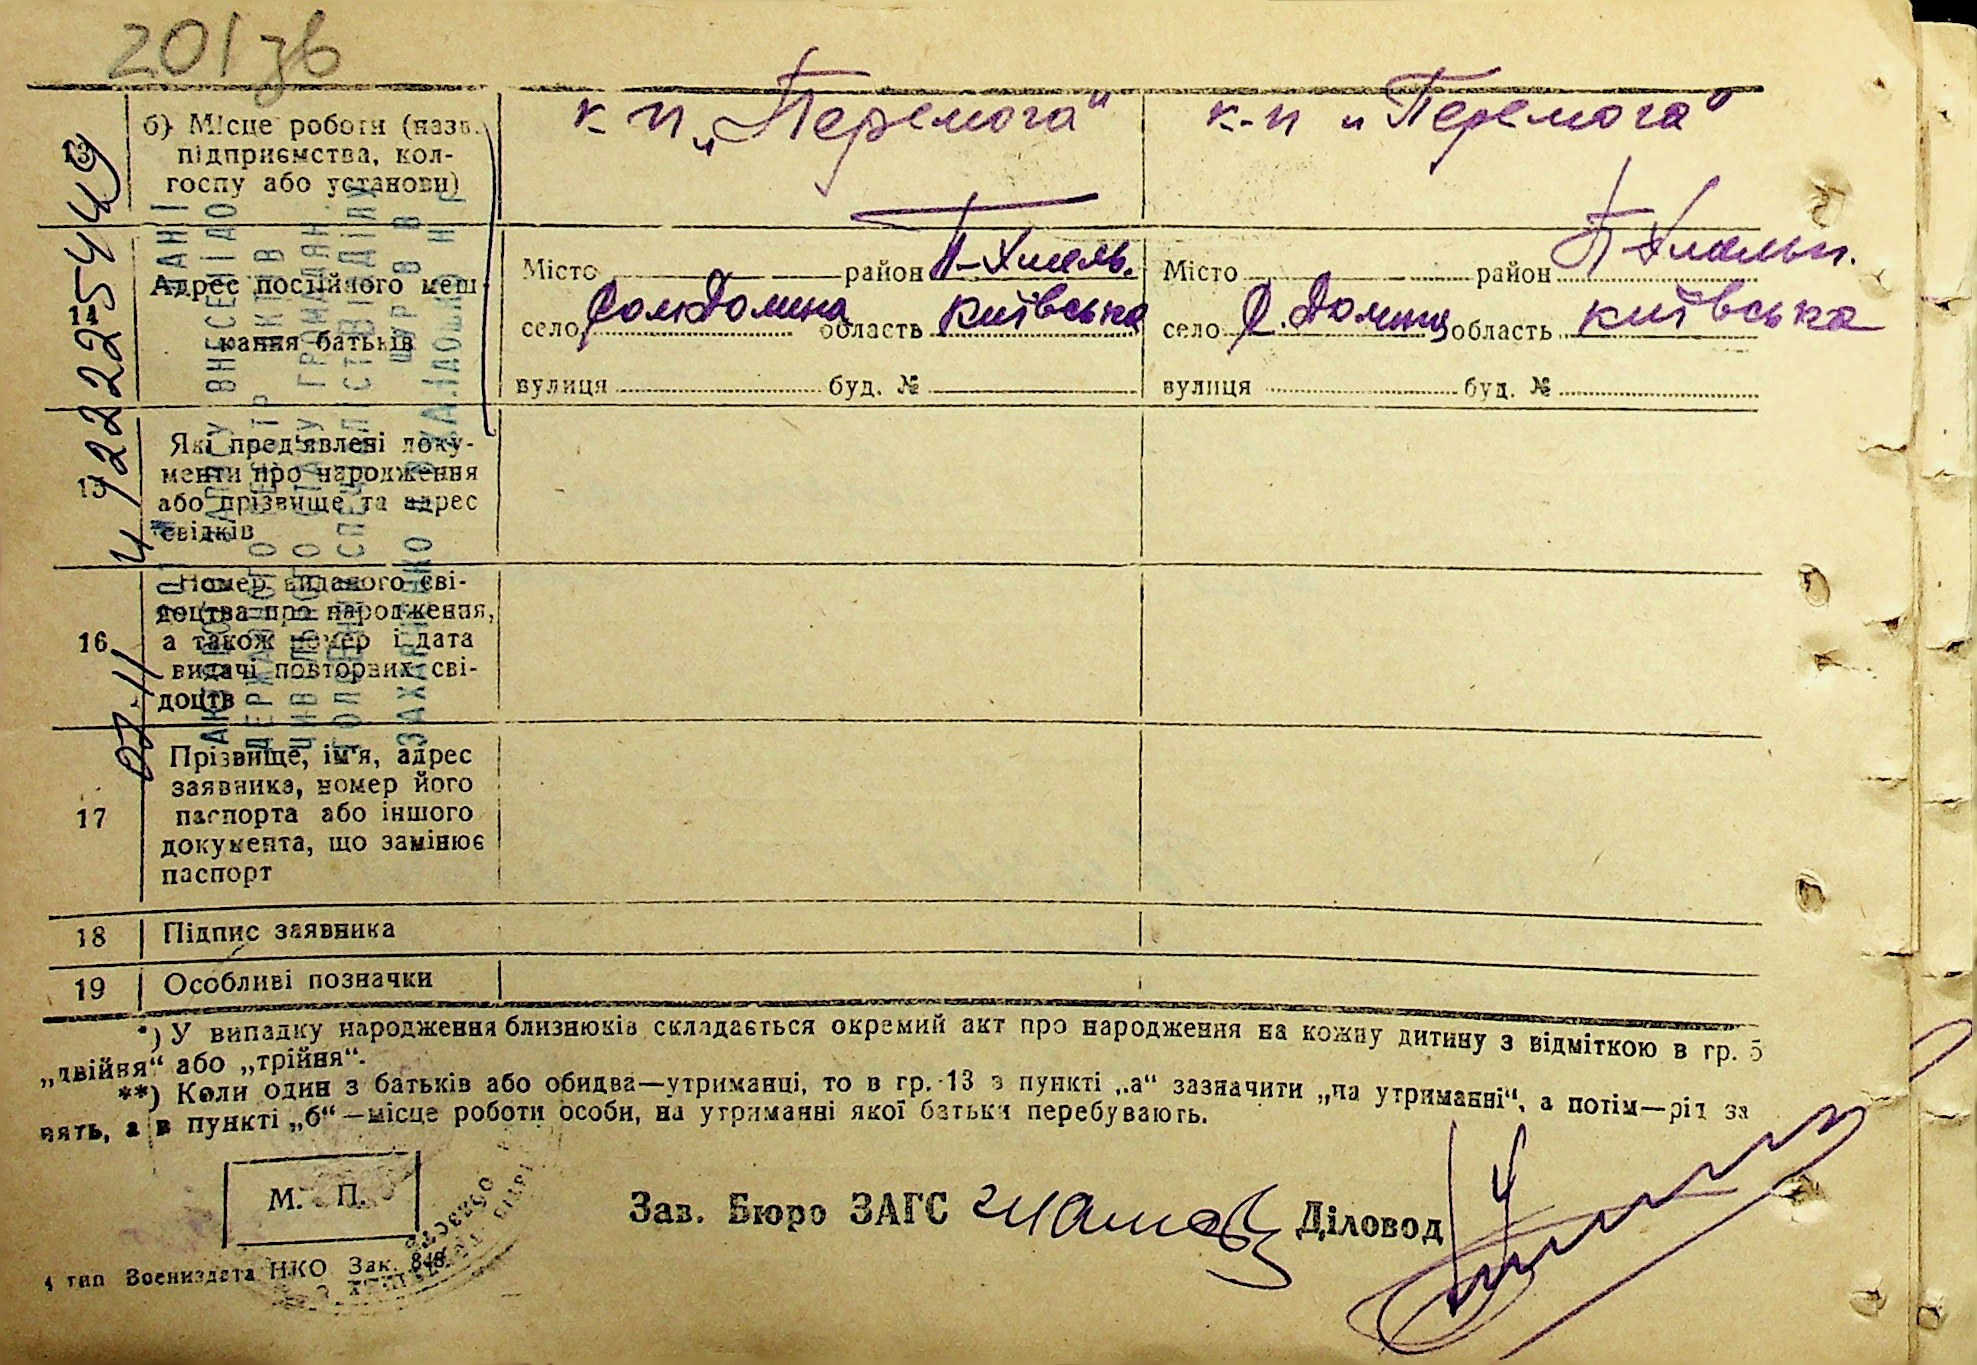 201 зв
13
б) Місце роботи (назв. підприємства, колгоспу або установи)
к-п „Перемога“
к-п „Перемога“
14
Адрес постійного мешкання батьків
Місто район П-Хмель.
село Долина область Київська
вулиця буд. №
Місто район П-Хмельн.
село С. Долина область Київська
вулиця буд. №
15
Які пред'явлені документи про народження або прізвище та адрес свідків
16
Номер виданого свідоцтва про народження, а також номер і дата видачі повторних свідоцтв
17
Прізвище, ім'я, адрес заявника, номер його паспорта або іншого документа, що замінює паспорт
18 Підпис заявника
19 Особливі позначки
*) У випадку народження близнюків складається окремий акт про народження на кожну дитину з відміткою в гр. 5
„двійня“ або „трійня“.
**) Коли один з батьків або обидва—утриманці, то в гр. 13 в пункті „а“ зазначити „на утриманні“, а потім—рід за
нять, а в пункті „б“—місце роботи особи, на утриманні якої батьки перебувають.
М. П.
Зав. Бюро ЗАГС Діловод
4 тип Воениздата НКО Зак. 848